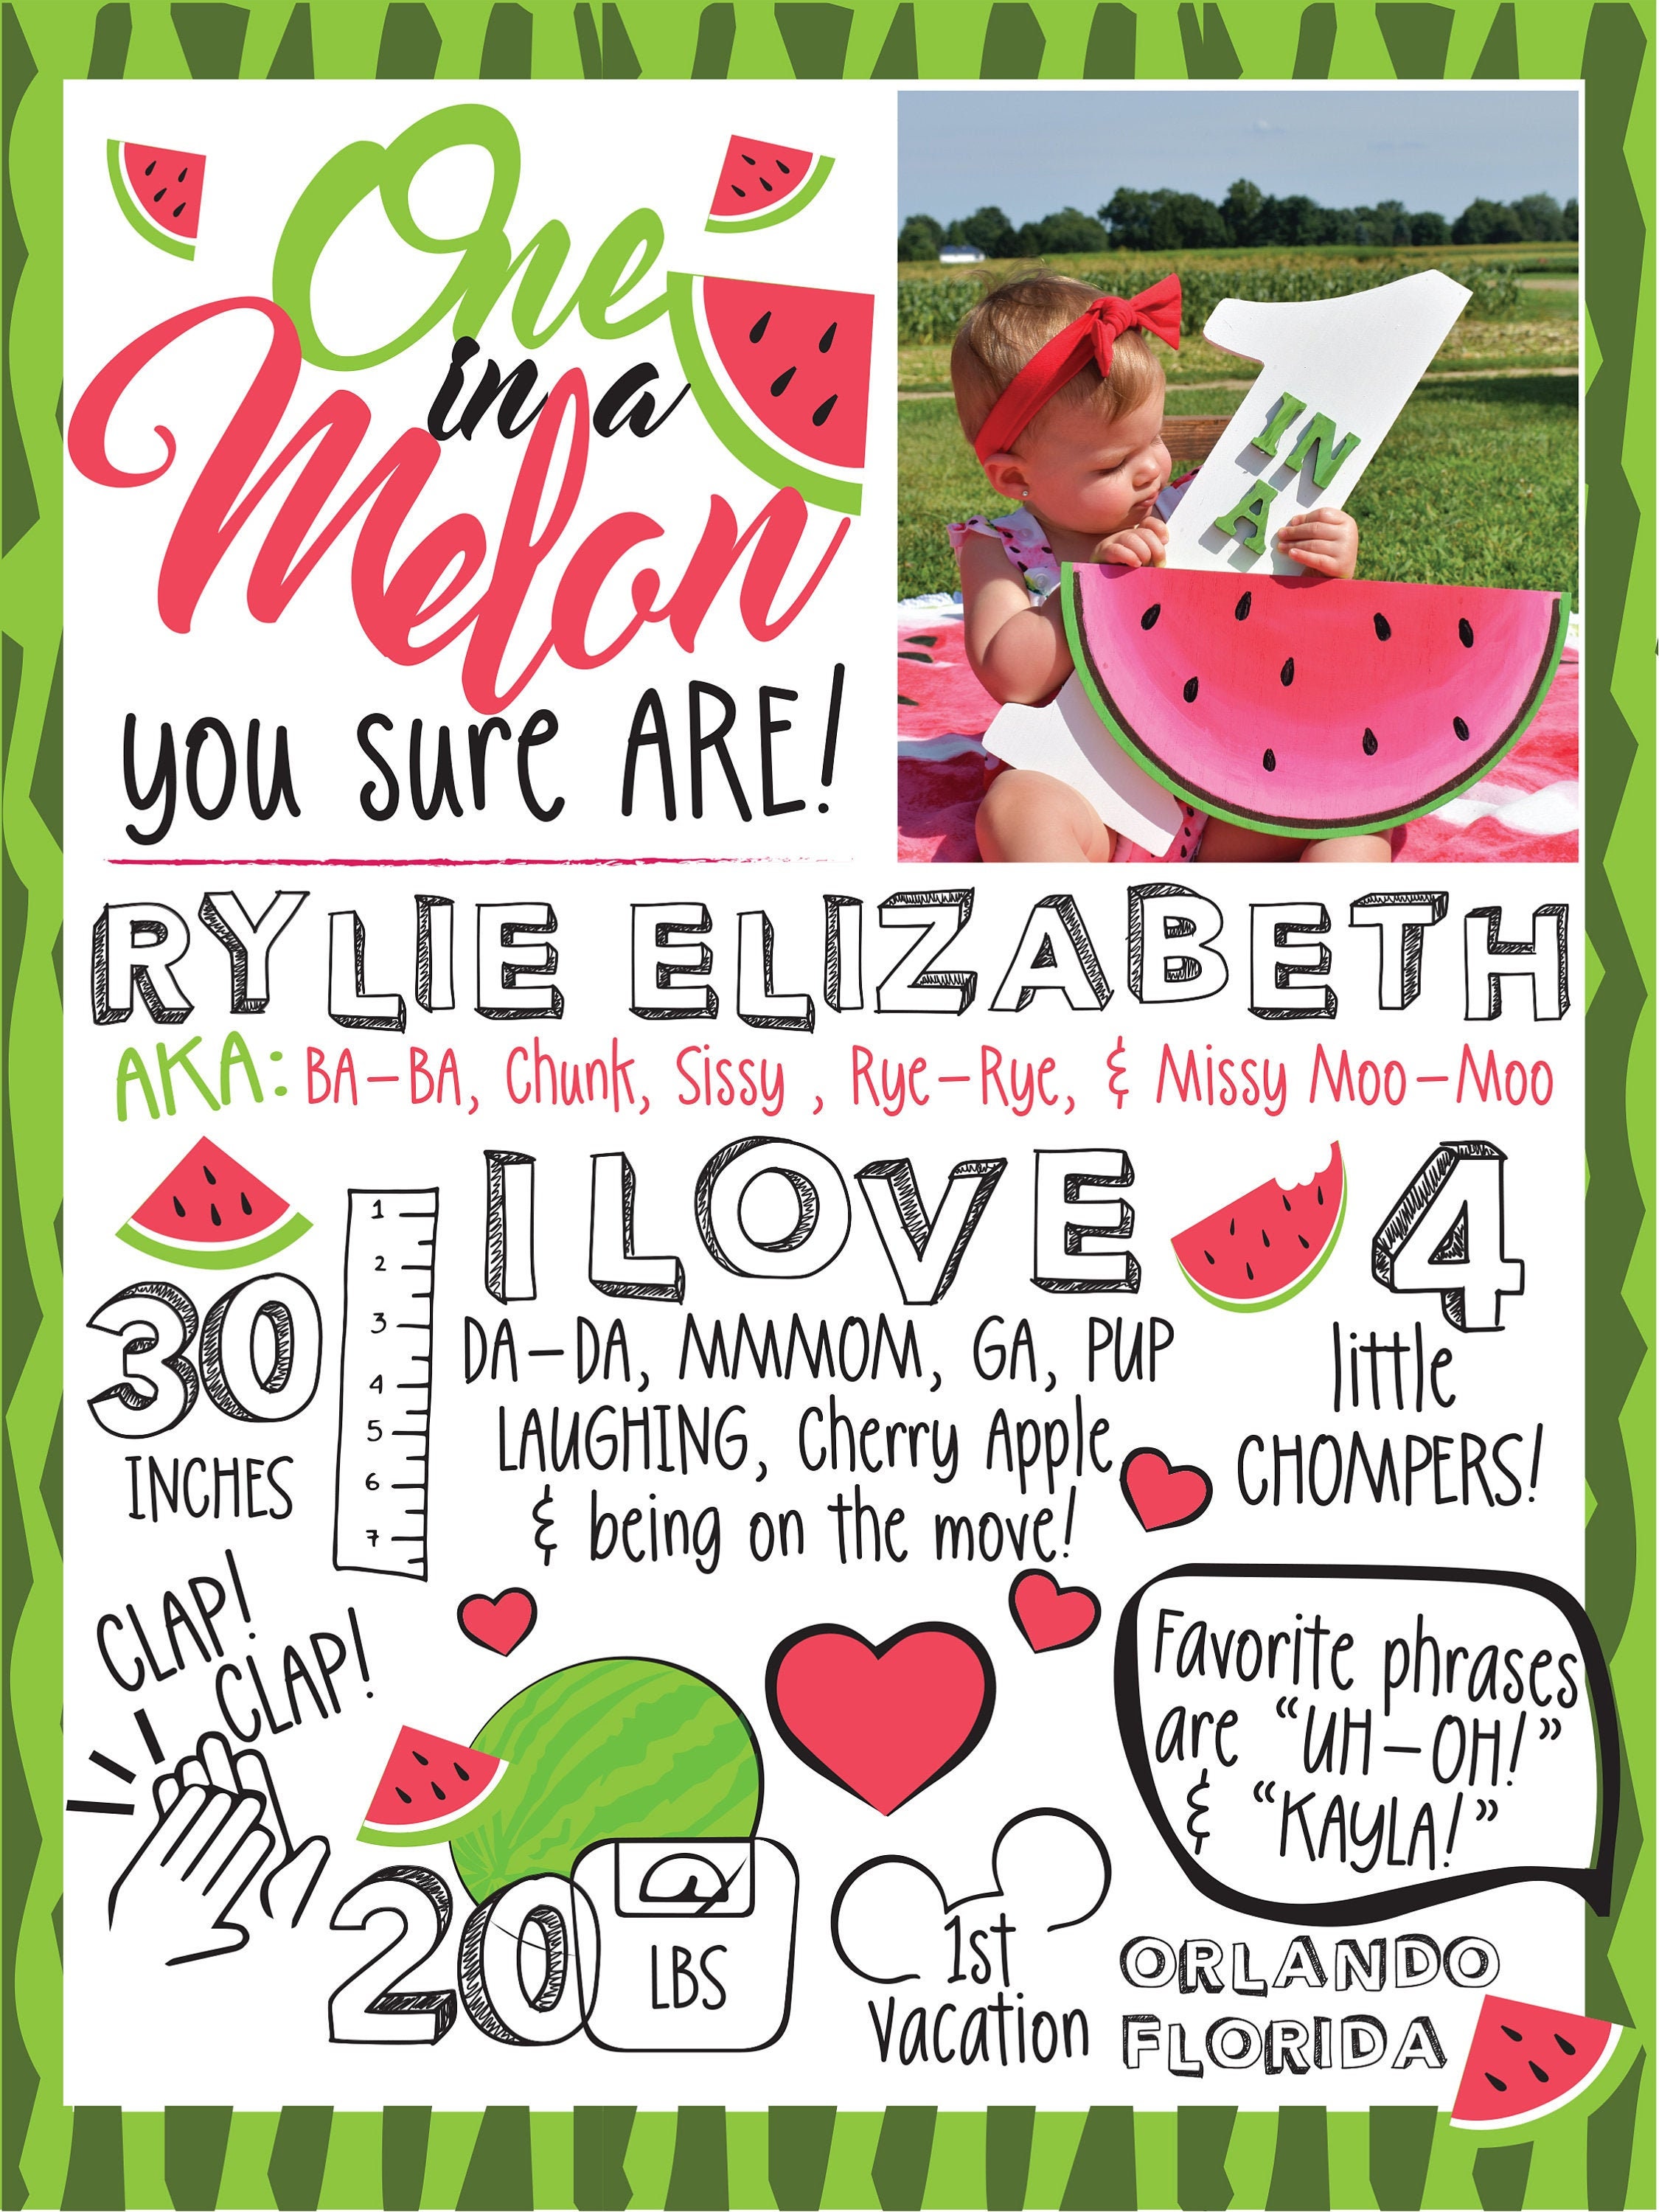 One
in a
Melon
you sure ARE!
1
IN
A
RYLIE ELIZABETH
AKA: BA-BA, Chunk, Sissy , Rye-Rye, & Missy Moo-Moo
30
INCHES
1
2
3
4
5
6
7
I LOVE
DA-DA, MMMOM, GA, PUP
LAUGHING, Cherry Apple
& being on the move!
4
little
CHOMPERS!
CLAP!
CLAP!
20
LBS
1st
Vacation
ORLANDO
FLORIDA
Favorite phrases
are “UH-OH!”
& “KAYLA!”